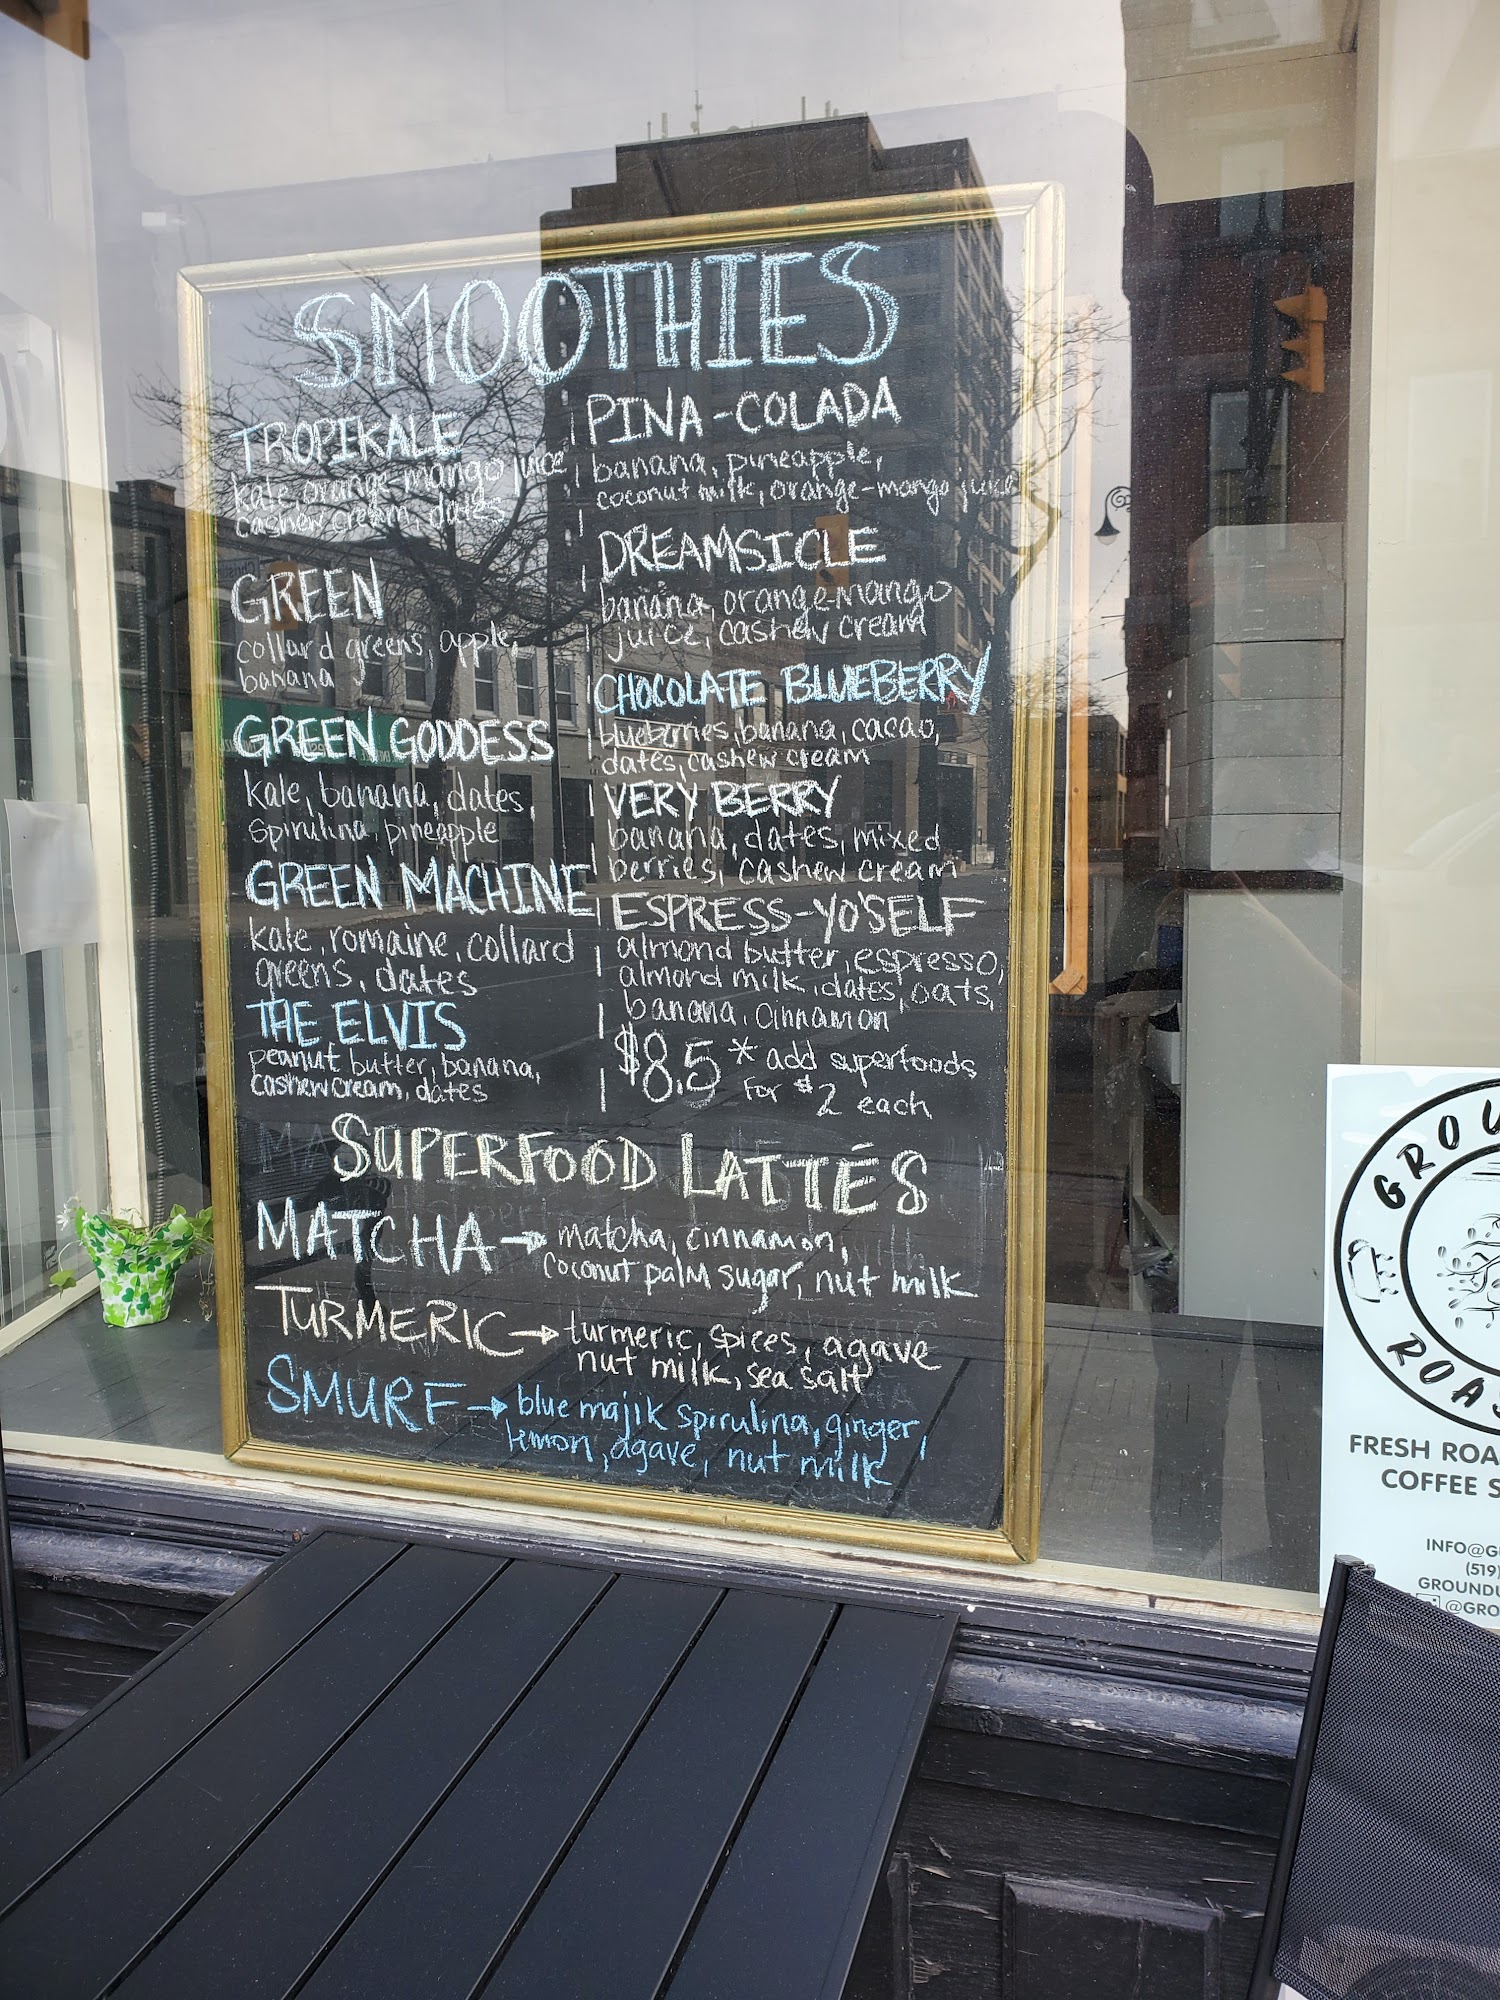 SMOOTHIES
TROPIKALE
kale, orange-mango juice,
cashew cream, dates
GREEN
collard greens, apple,
banana
GREEN GODDESS
kale, banana, dates,
spirulina, pineapple
GREEN MACHINE
kale, romaine, collard
greens, dates
THE ELVIS
peanut butter, banana,
cashew cream, dates
PINA-COLADA
banana, pineapple,
coconut milk, orange-mango juice
DREAMSICLE
banana, orange-mango
juice, cashew cream
CHOCOLATE BLUEBERRY
blueberries, banana, cacao,
dates, cashew cream
VERY BERRY
banana, dates, mixed
berries, cashew cream
ESPRESS-YO'SELF
almond butter, espresso,
almond milk, dates, oats,
banana, cinnamon
$8.5 * add superfoods
for $2 each
SUPERFOOD LATTÉS
MATCHA → matcha, cinnamon,
coconut palm sugar, nut milk
TURMERIC → turmeric, spices, agave
nut milk, sea salt
SMURF → blue majik spirulina, ginger,
lemon, agave, nut milk
FRESH
COFFEE
(519)